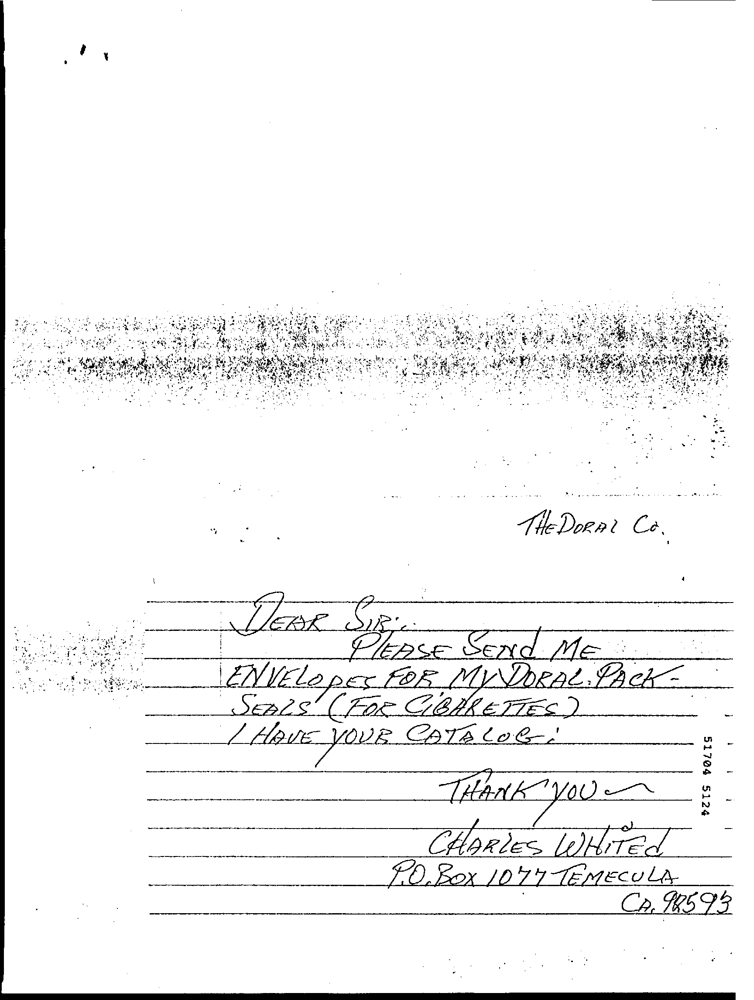 THE DORAL CO.
DEAR SIR:
PLEASE SEND ME
ENVELOPES FOR MY DORAL. PACK-
SEALS (FOR CIGARETTES)
I HAVE YOUR CATALOG:
THANK YOU
CHARLES WHITED
P.O. BOX 1077 TEMECULA
CA. 92593
51704 5124